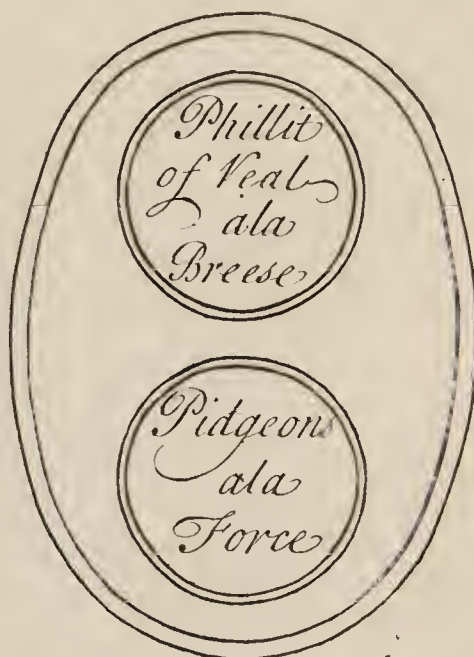 Phillit
of Veal
ala
Breese
Pidgeons
ala
Force